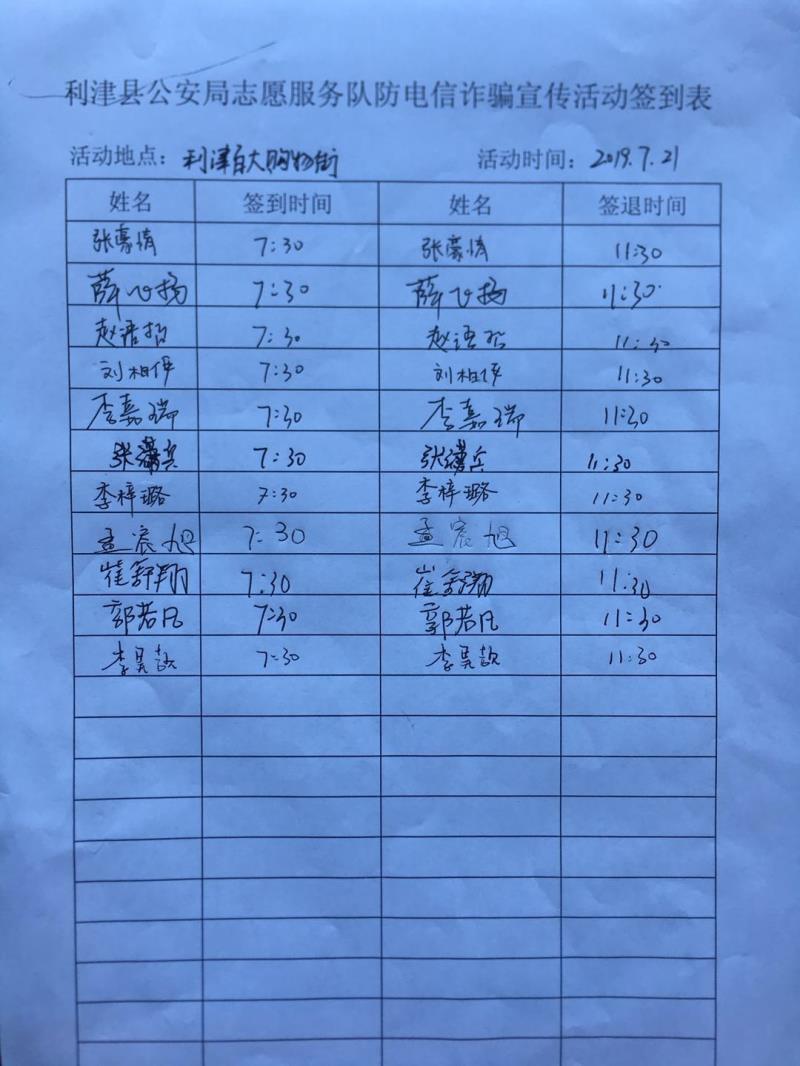 利津县公安局志愿服务队防电信诈骗宣传活动签到表
活动地点：利津百大购物街 活动时间：2019.7.21
姓名 签到时间 姓名 签退时间
张豪倩 7:30 张豪倩 11:30
薛飞扬 7:30 薛飞扬 11:30
赵语 7:30 赵语 11:30
刘相伊 7:30 刘相伊 11:30
李嘉瑞 7:30 李嘉瑞 11:30
张潇兵 7:30 张潇兵 11:30
李梓璐 7:30 李梓璐 11:30
孟宸旭 7:30 孟宸旭 11:30
崔舒翔 7:30 崔舒翔 11:30
郭若凡 7:30 郭若凡 11:30
李昊歆 7:30 李昊歆 11:30